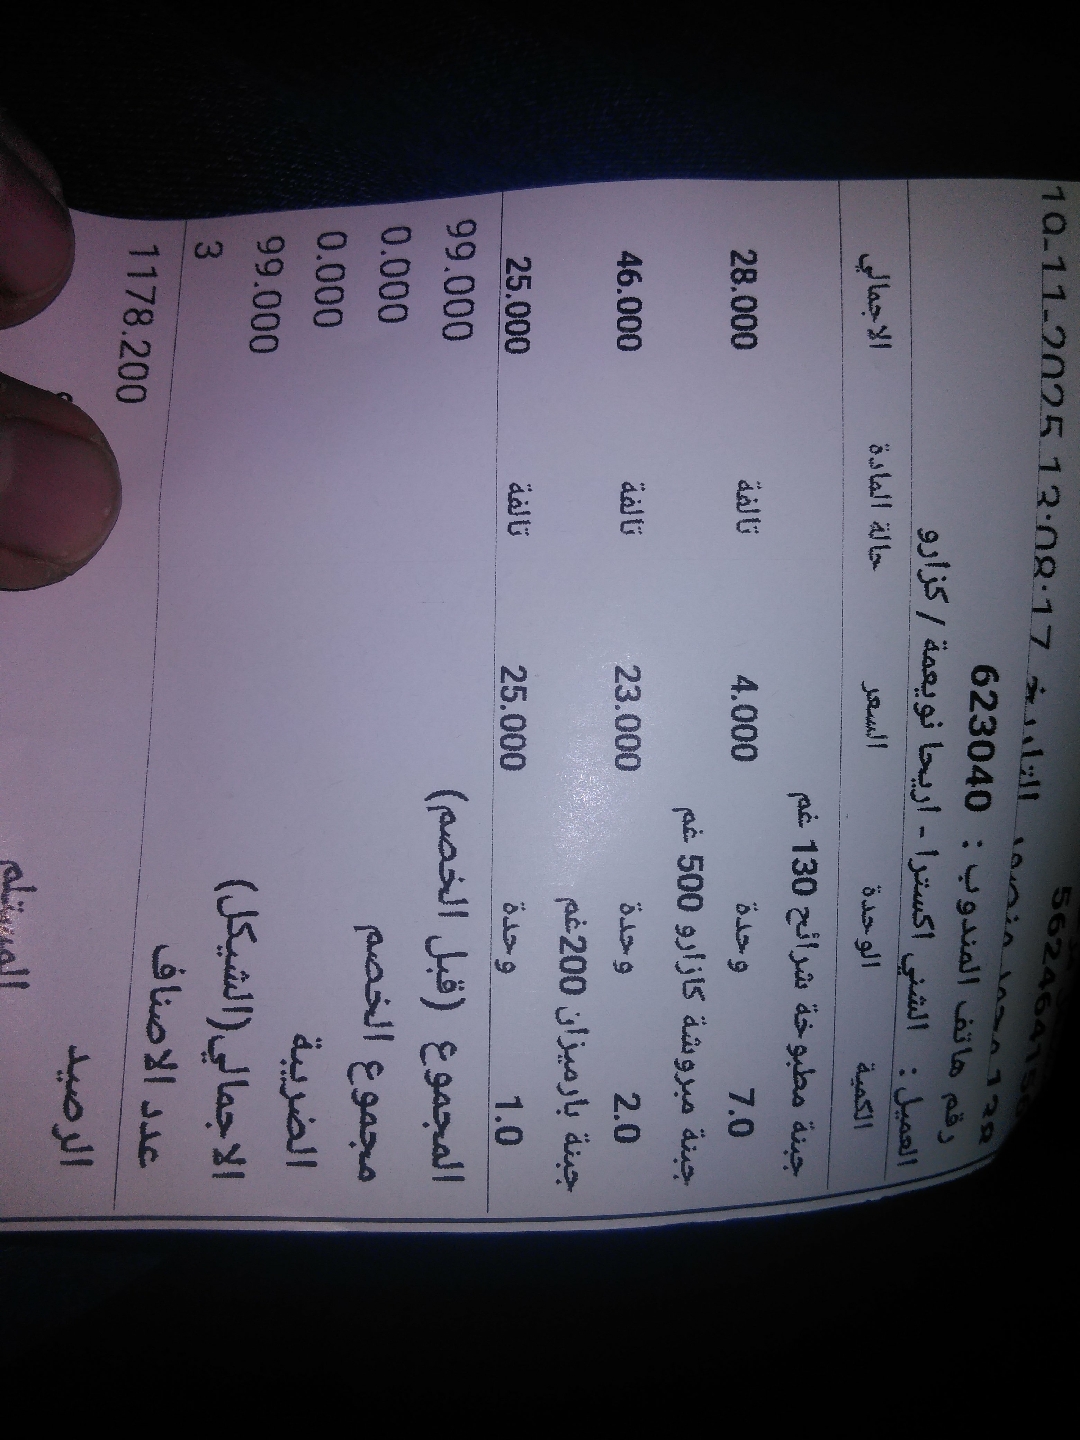 التاريخ 19-11-2025 13:08:17
رقم هاتف المندوب : 623040
العميل : الشني اكسترا - اريحا نويعمة / كزارو
الكمية الوحدة السعر حالة المادة الاجمالي
جبنة مطبوخة شرائح 130 غم
7.0 وحدة 4.000 تالفة 28.000
جبنة مبروشة كازارو 500 غم
2.0 وحدة 23.000 تالفة 46.000
جبنة بارميزان 200غم
1.0 وحدة 25.000 تالفة 25.000
المجموع (قبل الخصم) 99.000
مجموع الخصم 0.000
الضريبة 0.000
الاجمالي(الشيكل) 99.000
عدد الاصناف 3
الرصيد 1178.200
المستلم